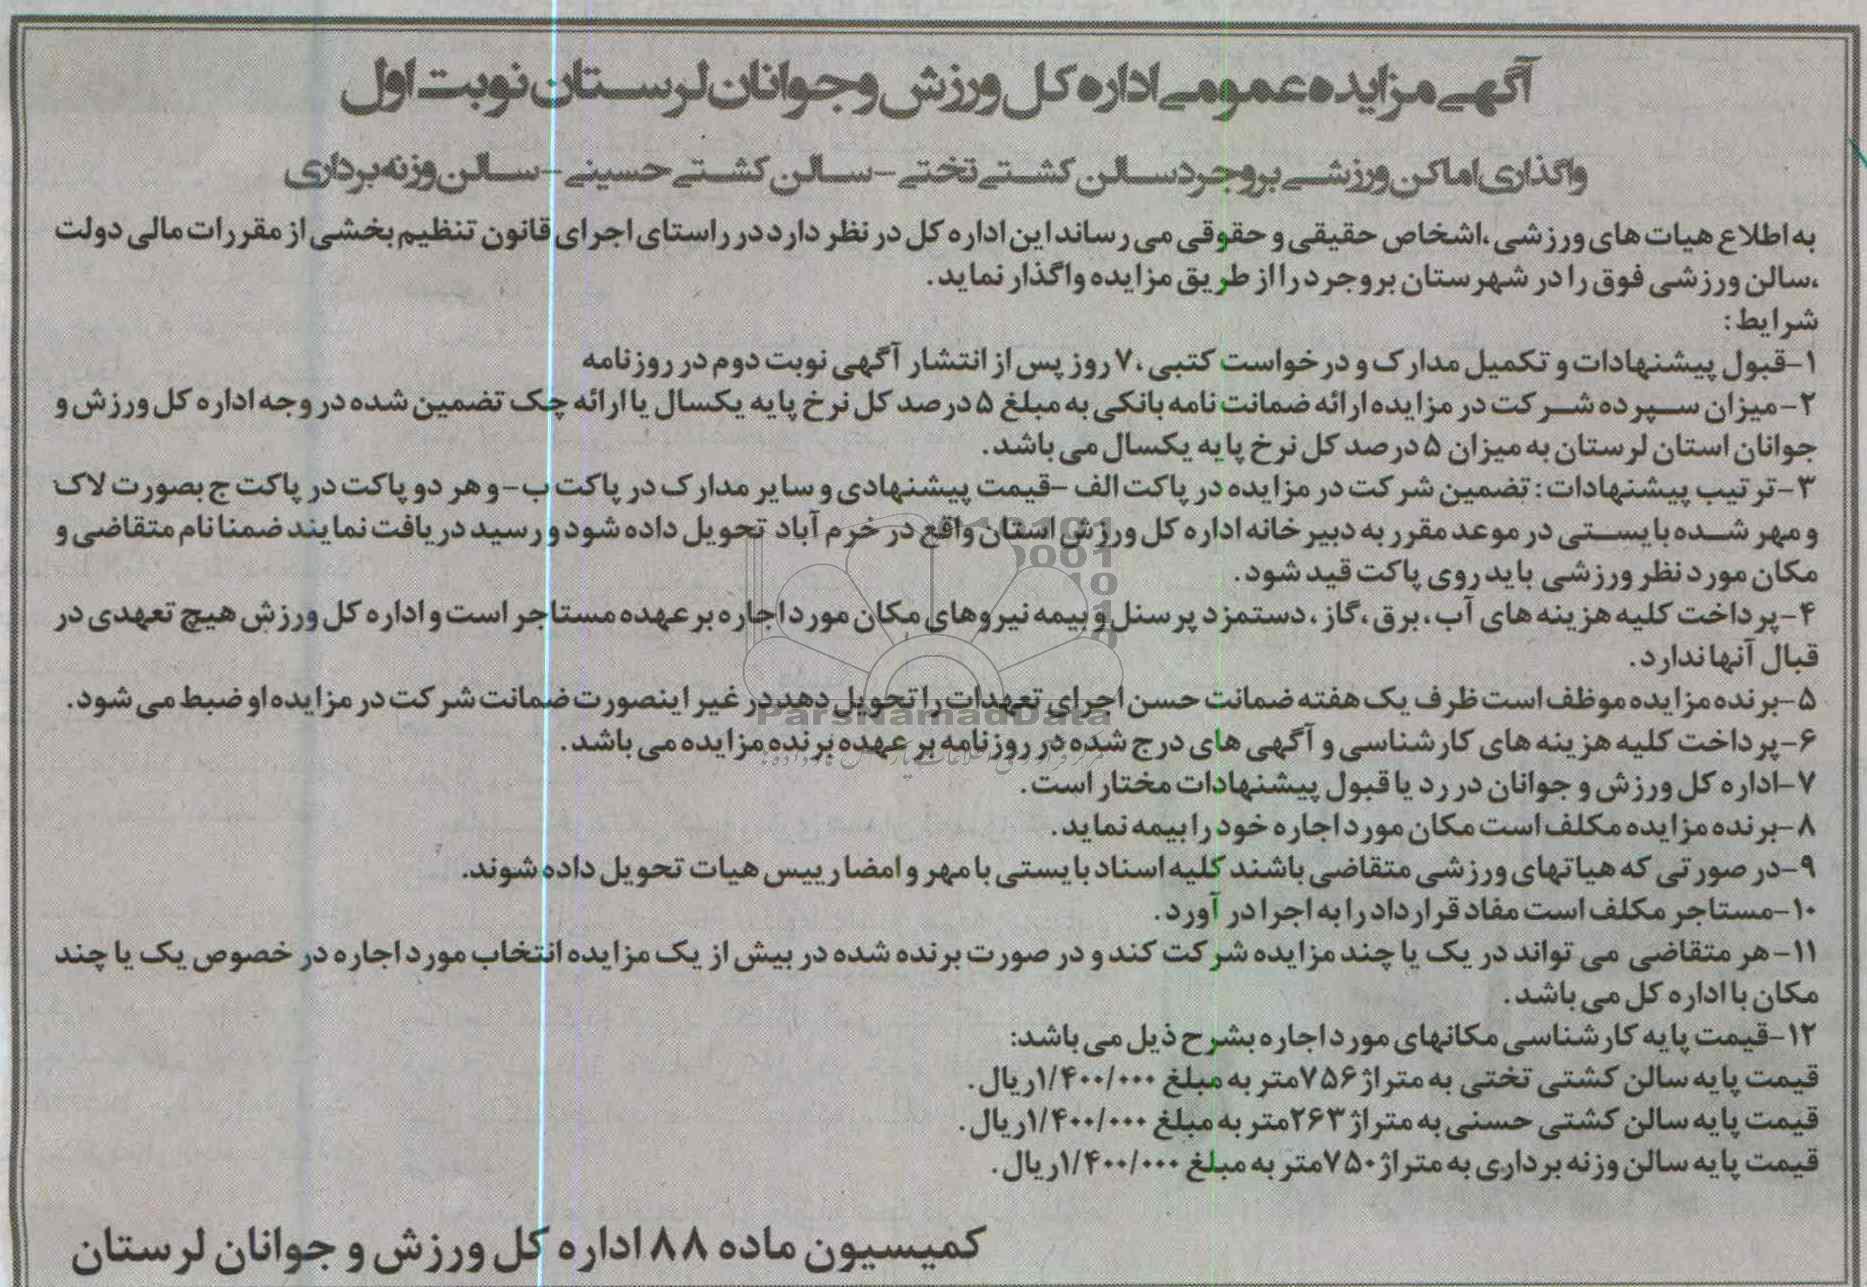 آگهی مزایده عمومی اداره کل ورزش و جوانان لرستان نوبت اول
واگذاری اماکن ورزشی بروجرد سالن کشتی تختی - سالن کشتی حسینی - سالن وزنه برداری
به اطلاع هیات های ورزشی ،اشخاص حقیقی و حقوقی می رساند این اداره کل در نظر دارد در راستای اجرای قانون تنظیم بخشی از مقررات مالی دولت
،سالن ورزشی فوق را در شهرستان بروجرد را از طریق مزایده واگذار نماید.
شرایط:
۱-قبول پیشنهادات و تکمیل مدارک و درخواست کتبی ،۷ روز پس از انتشار آگهی نوبت دوم در روزنامه
۲-میزان سپرده شرکت در مزایده ارائه ضمانت نامه بانکی به مبلغ ۵ درصد کل نرخ پایه یکسال یا ارائه چک تضمین شده در وجه اداره کل ورزش و
جوانان استان لرستان به میزان ۵ درصد کل نرخ پایه یکسال می باشد.
۳-ترتیب پیشنهادات : تضمین شرکت در مزایده در پاکت الف -قیمت پیشنهادی و سایر مدارک در پاکت ب-و هر دو پاکت در پاکت ج بصورت لاک
و مهر شده بایستی در موعد مقرر به دبیرخانه اداره کل ورزش استان واقع در خرم آباد تحویل داده شود و رسید دریافت نمایند ضمنا نام متقاضی و
مکان مورد نظر ورزشی باید روی پاکت قید شود.
۴-پرداخت کلیه هزینه های آب، برق ،گاز ، دستمزد پرسنل و بیمه نیروهای مکان مورد اجاره بر عهده مستاجر است و اداره کل ورزش هیچ تعهدی در
قبال آنها ندارد.
۵-برنده مزایده موظف است ظرف یک هفته ضمانت حسن اجرای تعهدات را تحویل دهد در غیر اینصورت ضمانت شرکت در مزایده او ضبط می شود.
ParsNamadData
۶-پرداخت کلیه هزینه های کارشناسی و آگهی های درج شده در روزنامه بر عهده برنده مزایده می باشد.
۷-اداره کل ورزش و جوانان در رد یا قبول پیشنهادات مختار است.
۸-برنده مزایده مکلف است مکان مورد اجاره خود را بیمه نماید.
۹-در صورتی که هیاتهای ورزشی متقاضی باشند کلیه اسناد بایستی با مهر و امضا رییس هیات تحویل داده شوند.
۱۰-مستاجر مکلف است مفاد قرارداد را به اجرا در آورد.
۱۱-هر متقاضی می تواند در یک یا چند مزایده شرکت کند و در صورت برنده شده در بیش از یک مزایده انتخاب مورد اجاره در خصوص یک یا چند
مکان با اداره کل می باشد.
۱۲-قیمت پایه کارشناسی مکانهای مورد اجاره بشرح ذیل می باشد:
قیمت پایه سالن کشتی تختی به متراژ ۷۵۶متر به مبلغ ۱/۴۰۰/۰۰۰ریال.
قیمت پایه سالن کشتی حسنی به متراژ ۲۶۳متر به مبلغ ۱/۴۰۰/۰۰۰ریال.
قیمت پایه سالن وزنه برداری به متراژ ۷۵۰متر به مبلغ ۱/۴۰۰/۰۰۰ریال.
کمیسیون ماده ۸۸ اداره کل ورزش و جوانان لرستان